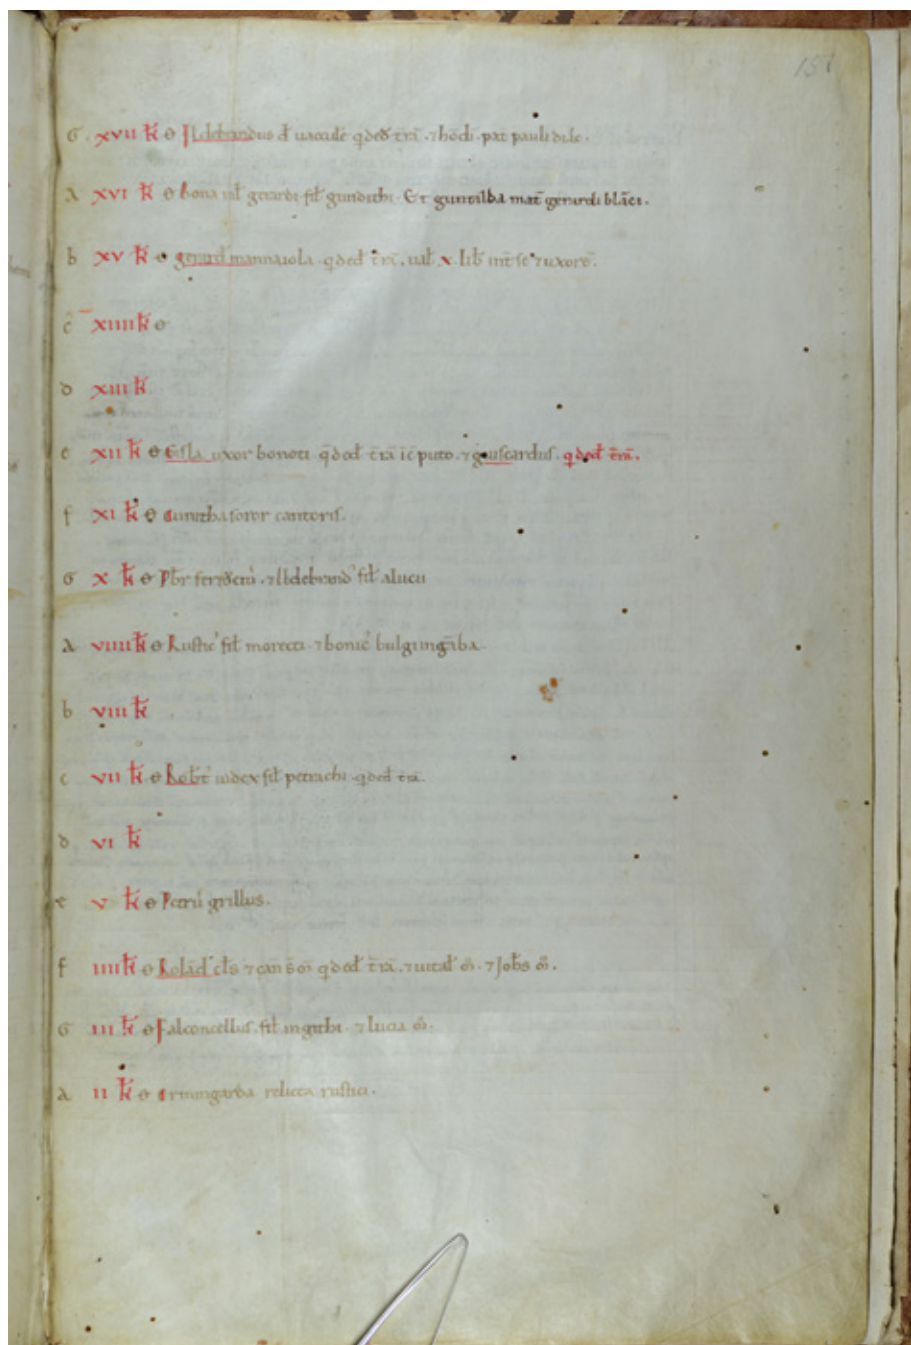 151
G. xvii k̄ ɵ Ildebrandus đ uaccule q̄ ded t̄rā. ⁊ hodi. pat̄ pauli disc.
A xvi k̄ ɵ Bona ux̄ gerardi. fil̄ gundithi. Et guntilba mat̄ gerardi blāci.
b xv k̄ ɵ gerard᾽ mannaiola. q̄ ded t̄rā. ual̄ x. lib̄ int̄ se ⁊ uxorē.
c xiiii k̄ ɵ
d xiii k̄
e xii k̄ ɵ Gisla uxor bonoti. q̄ ded t̄rā ic̄ puto. ⁊ guiscardus. q̄ ded t̄rā.
f xi k̄ ɵ Cunitha soror cantoris.
G x k̄ ɵ Pb̄r ⁊ Ildebrand᾽ fil̄ alucii
A viiii k̄ ɵ Rustic᾽ fil̄ morecti. ⁊ bonic᾽
b viii k̄
c vii k̄ ɵ Rob̄t᾽ iudex fil̄ petrachi. q̄ ded t̄rā.
d vi k̄
e v k̄ ɵ Petru᾽ grillus.
f iiii k̄ ɵ Rolād᾽ cl̄s ⁊ cān q̄ ded t̄rā. ⁊ uital̄ m̄. ⁊ Joh̄s m̄.
G iii k̄ ɵ Falconcellus. fil̄ ingithi. ⁊ lucia m̄.
A ii k̄ ɵ Ermingarda relicta rustici.